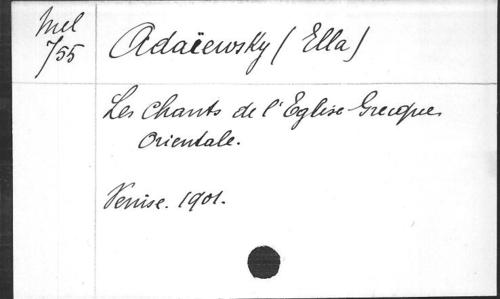 Mel
7/55
Adaïewsky (Ella)
Les Chants de l'Eglise Grecque
Orientale.
Venise. 1901.